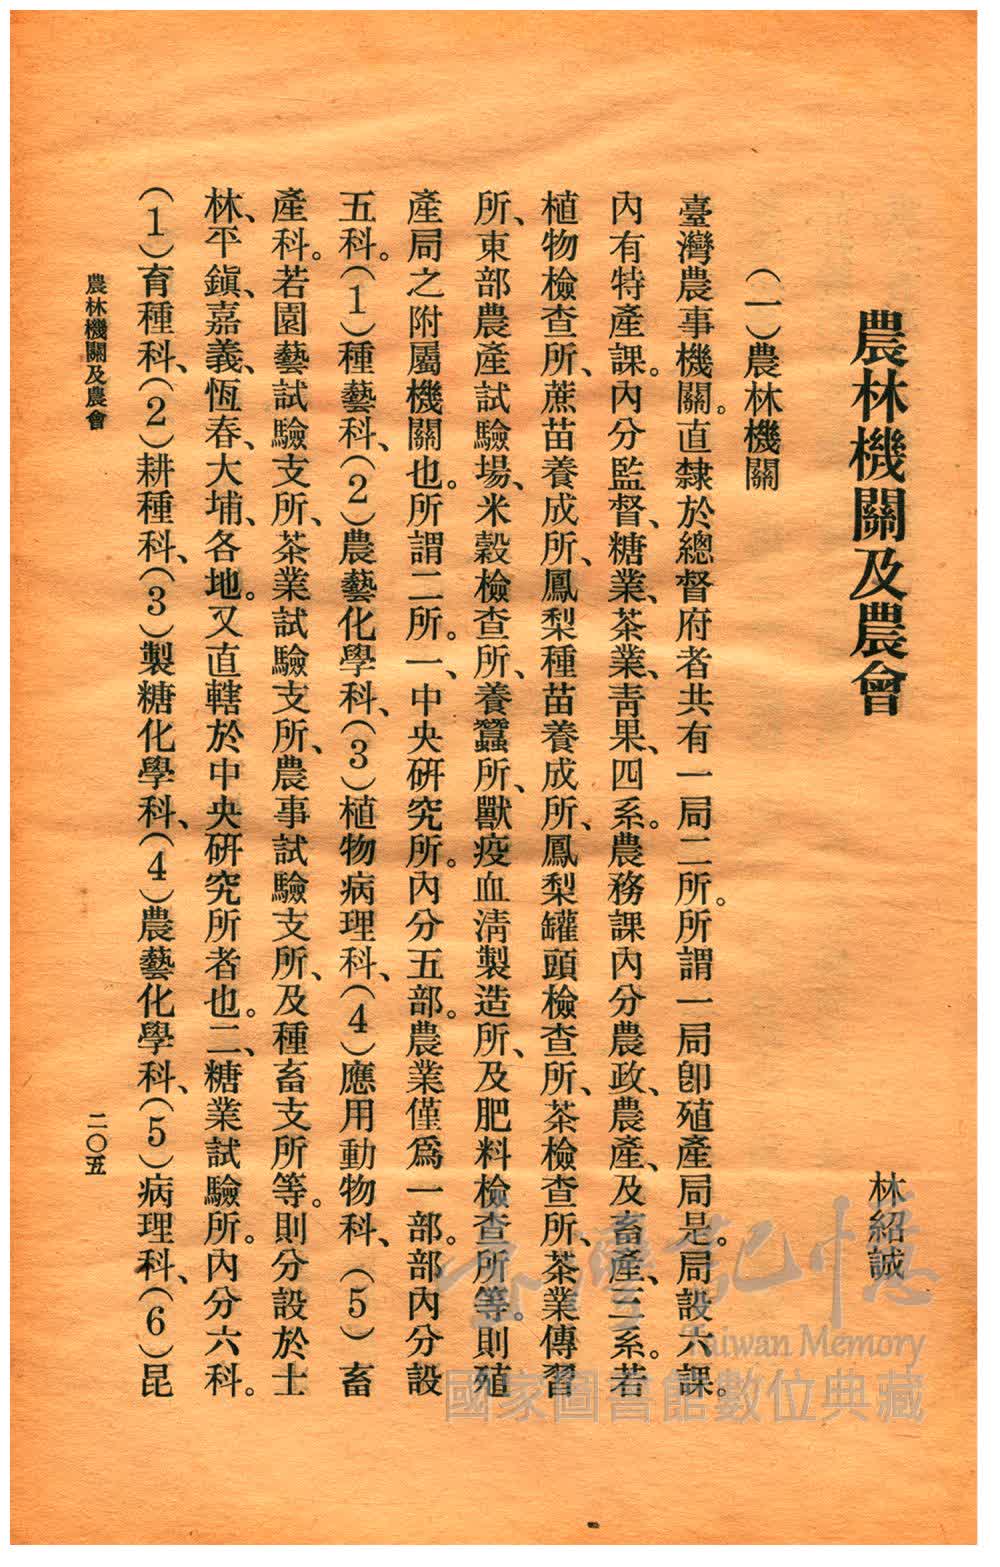 農林機關及農會
林紹誠
（一）農林機關
臺灣農事機關。直隸於總督府者共有一局二所。所謂一局卽殖產局是。局設六課。
內有特產課。內分監督、糖業、茶業、靑果、四系。農務課內分農政、農產、及畜產、三系。若
植物檢查所、蔗苗養成所、鳳梨種苗養成所、鳳梨罐頭檢查所、茶檢查所、茶業傳習
所、東部農產試驗場、米穀檢查所、養蠶所、獸疫血淸製造所、及肥料檢查所等。則殖
產局之附屬機關也。所謂二所。一、中央研究所。內分五部。農業僅爲一部。部內分設
五科。（1）種藝科、（2）農藝化學科、（3）植物病理科、（4）應用動物科、（5）畜
產科。若園藝試驗支所、茶業試驗支所、農事試驗支所、及種畜支所等。則分設於士
林、平鎭、嘉義、恆春、大埔、各地。又直轄於中央研究所者也。二、糖業試驗所。內分六科。
（1）育種科、（2）耕種科、（3）製糖化學科、（4）農藝化學科、（5）病理科、（6）昆
農林機關及農會
二〇五
臺灣記憶
Taiwan Memory
國家圖書館數位典藏